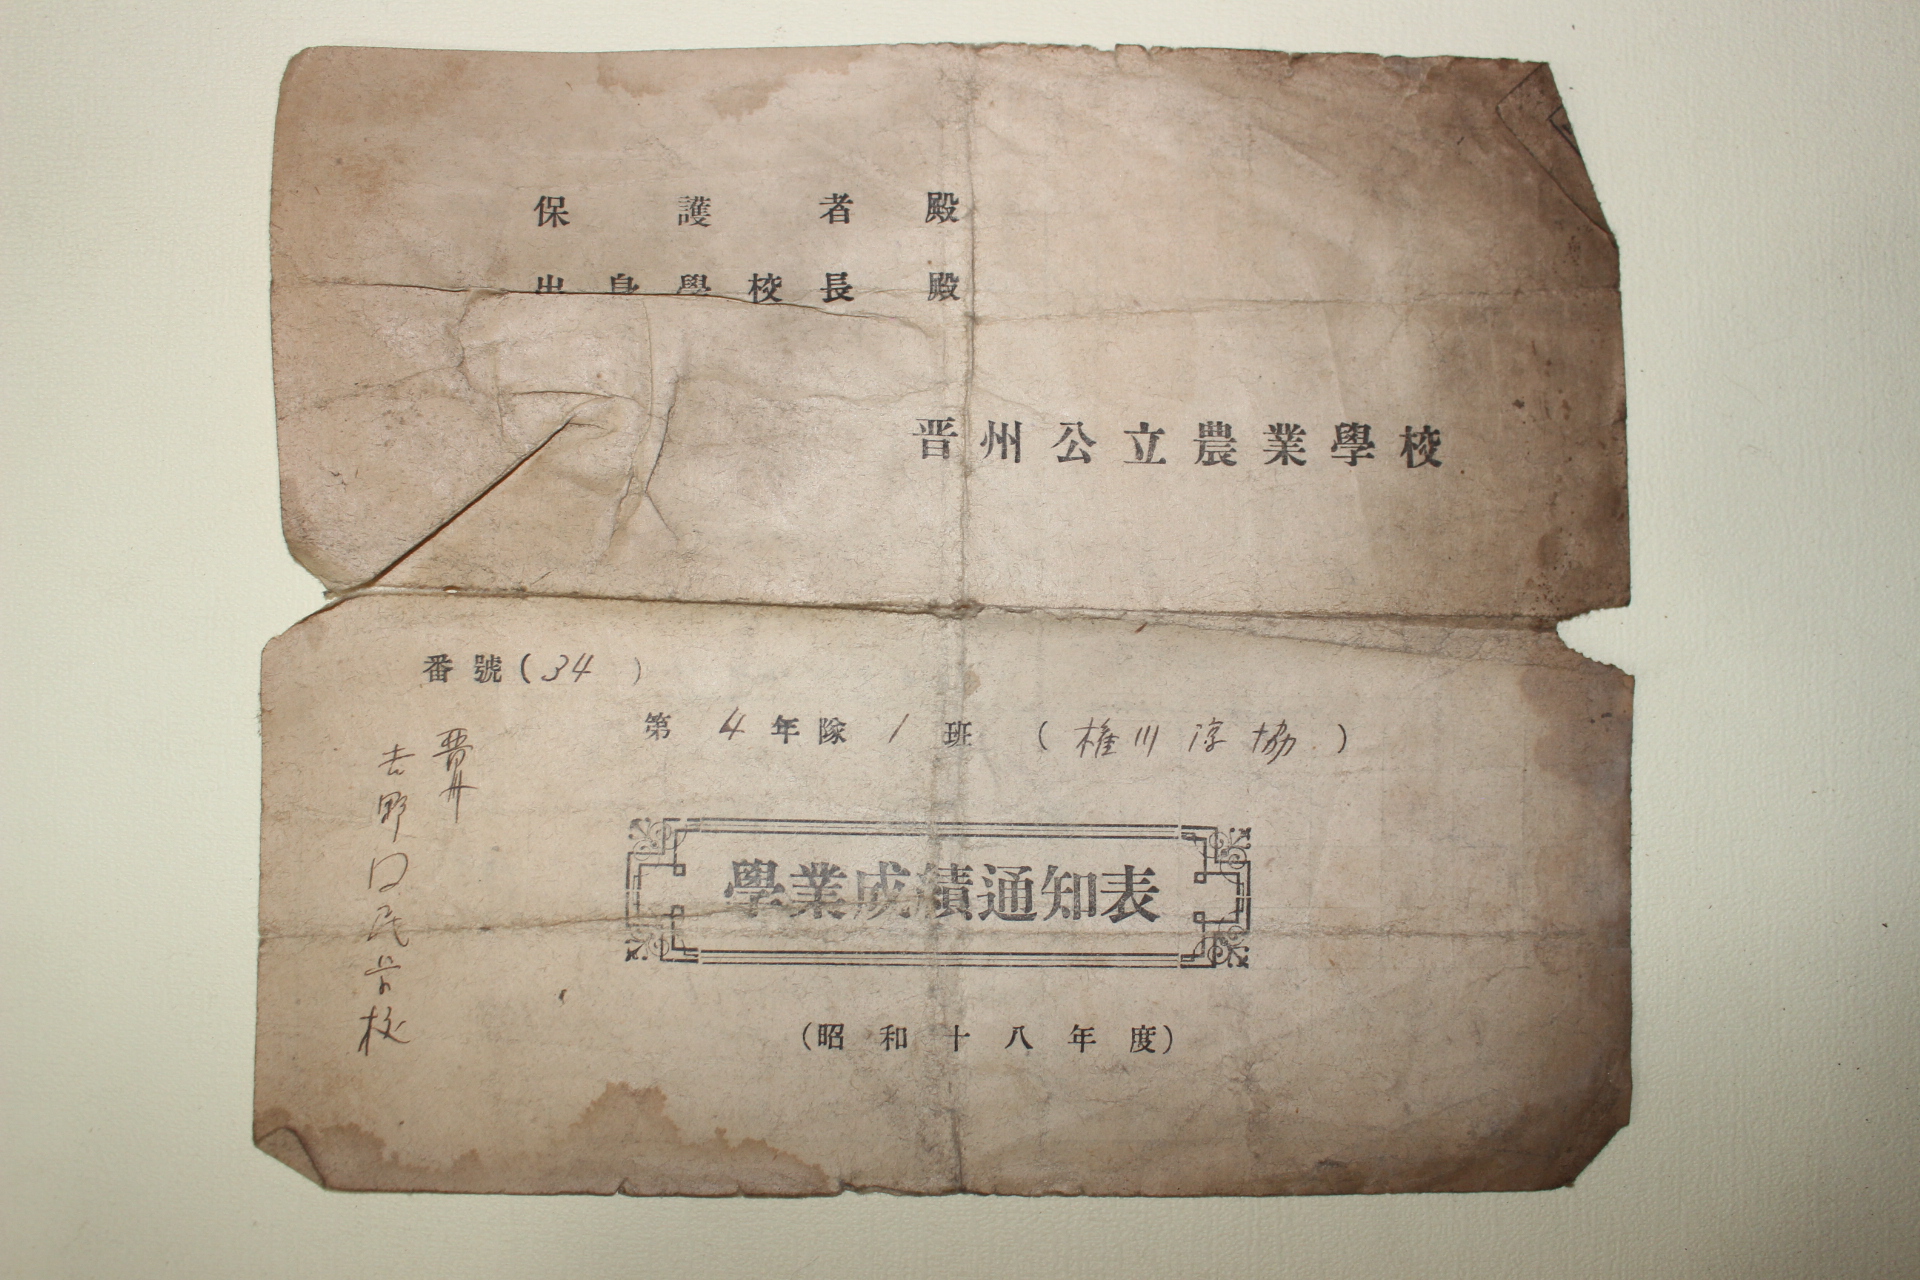 保護者殿
出身學校長殿
晋州公立農業學校
番號(34)
第4年隊1班(権川淳協)
晋州
吉野国民学校
學業成績通知表
(昭和十八年度)